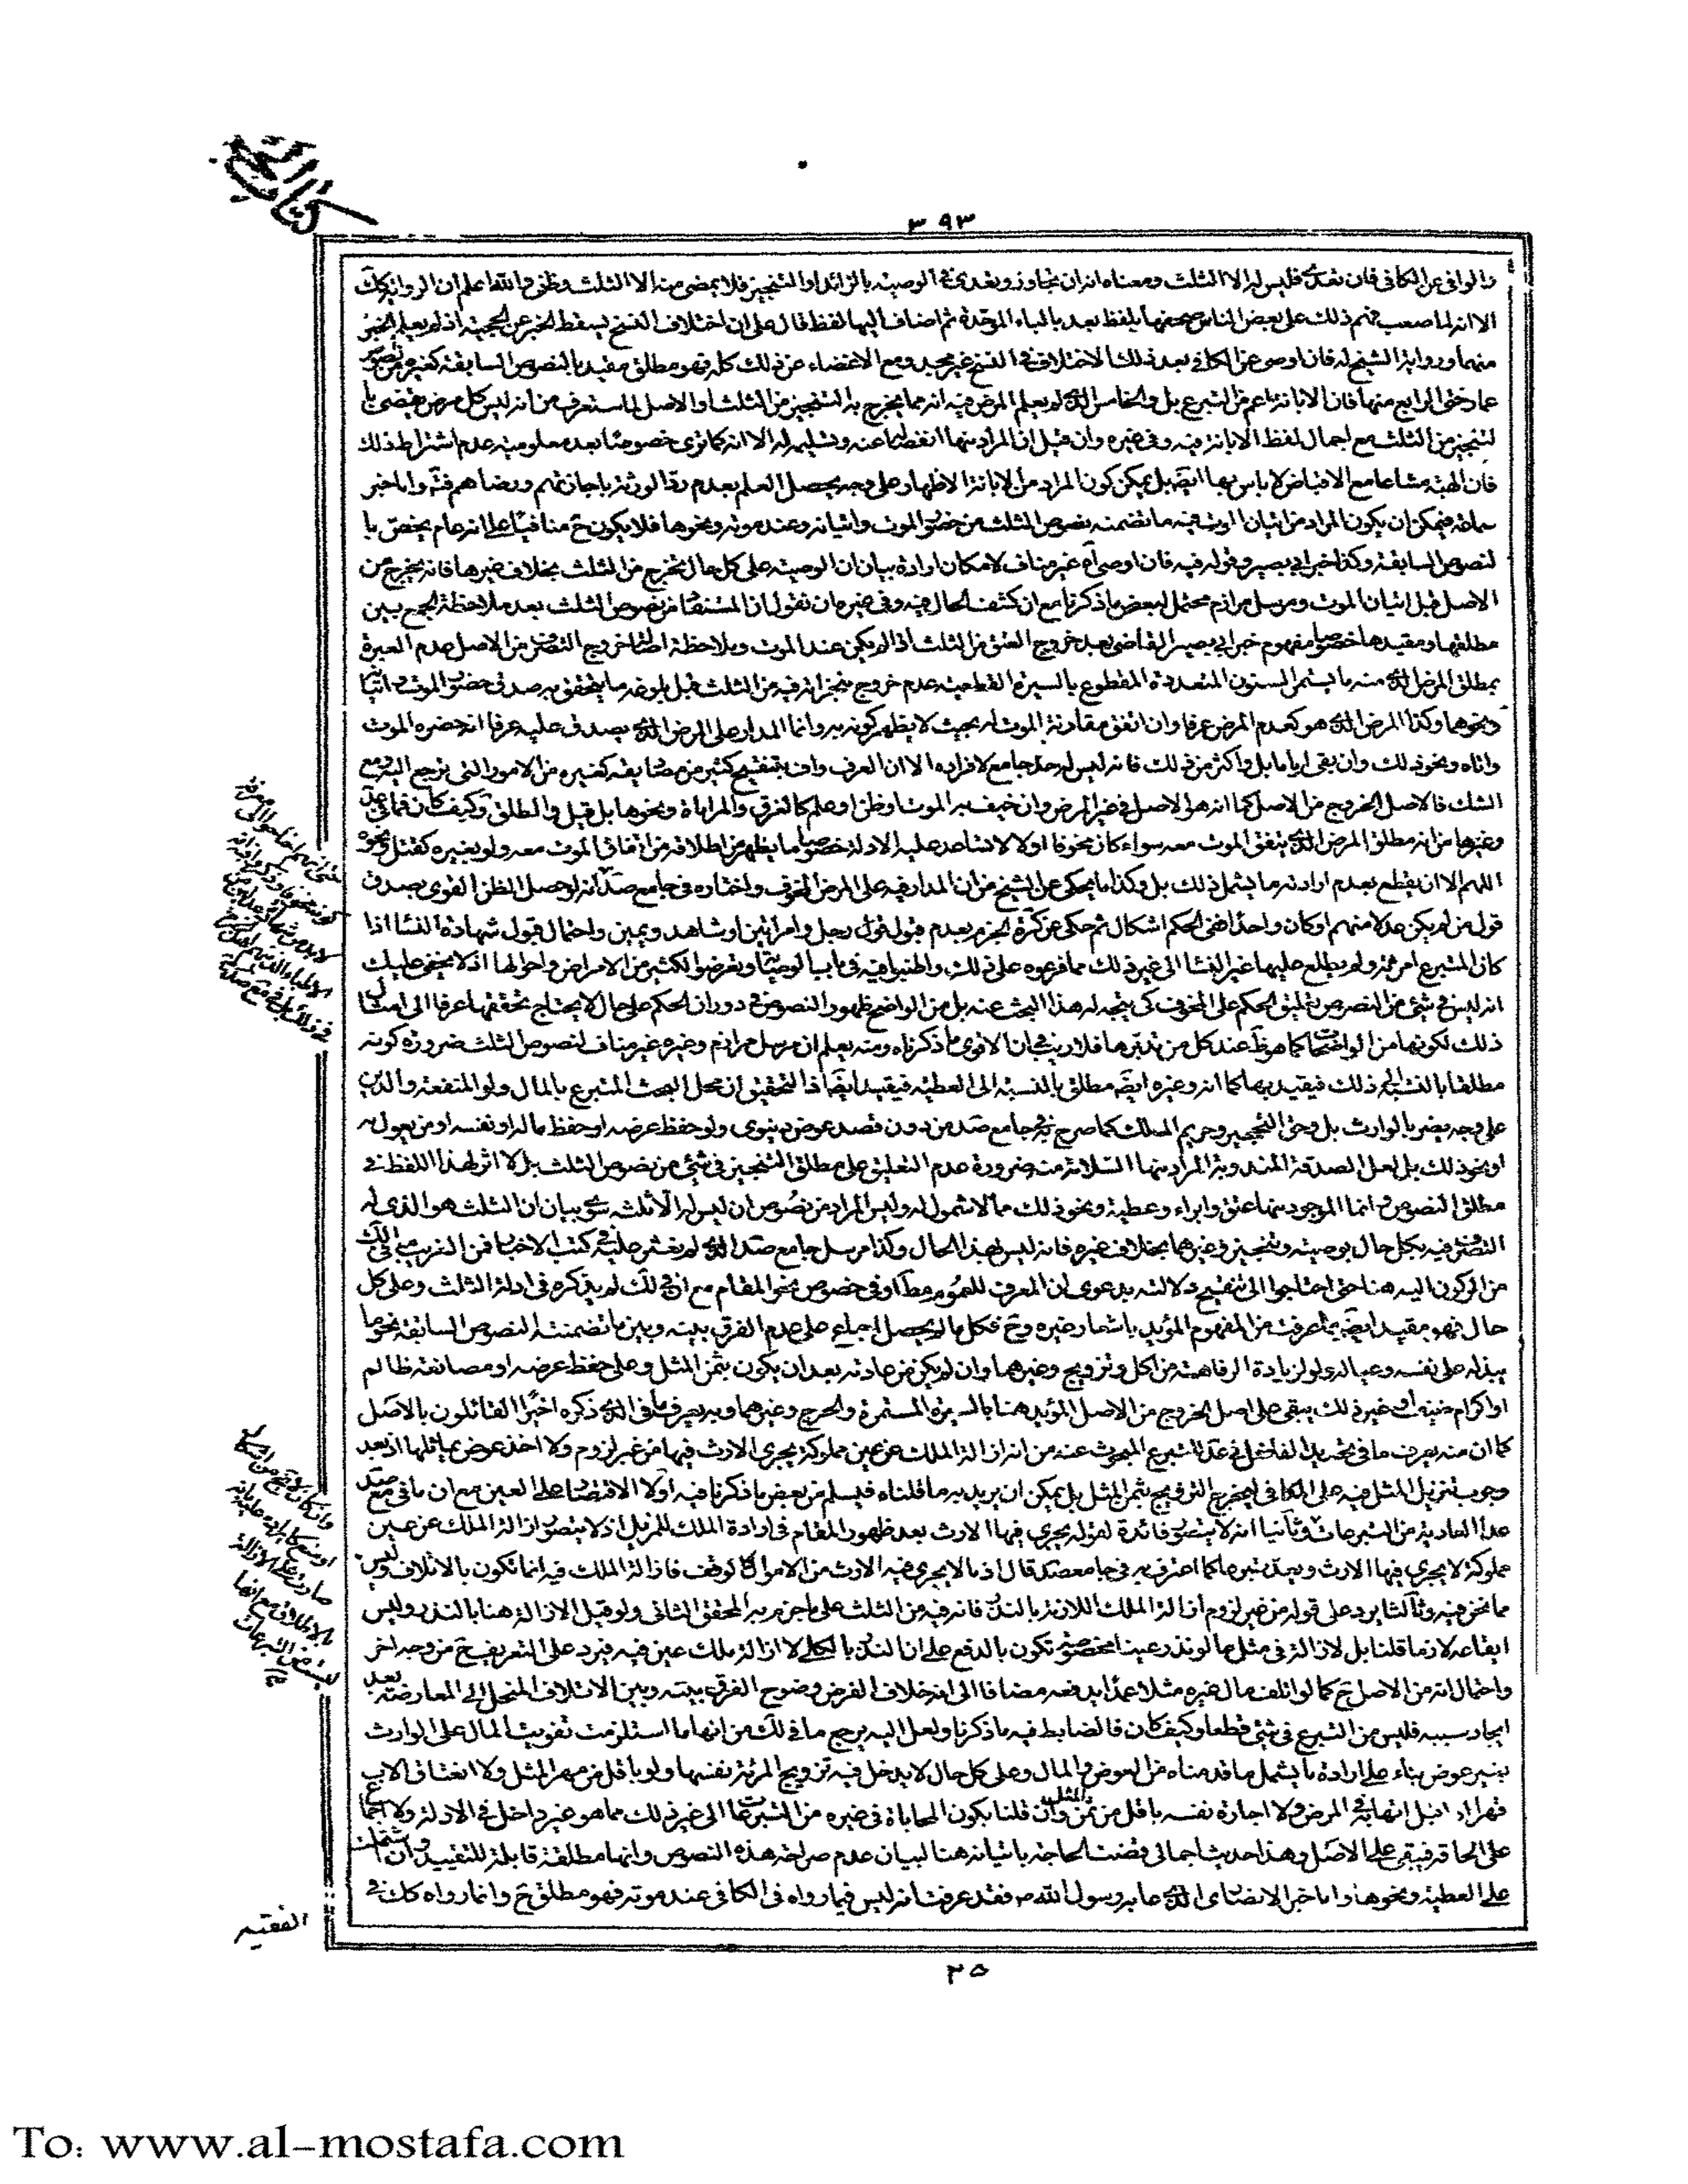 ٣٩٣
والوافي عن الكافي فان تعدى فليس له الا الثلث ومعناه انه ان تجاوز وتعدى في الوصية بالزائد او التنجيز فلا يمضى منه الا الثلث وظني والله اعلم ان الرواية كك
الا انه لما صعب فهم ذلك على بعض الناس صحفها بلفظ بعد بالباء الموحدة ثم اضاف اليها لفظ قال على ان اختلاف النسخ يسقط الخبر عن الحجية اذ لم يعلم الخبر
منهما ورواية الشيخ له فان اوصى عن الكافي بعد ذلك الاختلاف في النسخ غير مجد ومع الاغضاء عن ذلك كله فهو مطلق مقيد بالنصوص السابقة كغيره من نصوص
عمار حتى الرابع منها فان الابانة اعم من التبرع بل والخامس الذي لم يعلم المرض فيه انه مما يخرج به التنجيز من الثلث او الاصل لما ستعرف من انه ليس كل مرض يقتضى با
لتنجيز من الثلث مع اجمال لفظ الابانة فيه وفي غيره وان قيل ان المراد بها انفصالها عنه وتسليمه له الا انه كما ترى خصوصا بعد معلومية عدم اشتراط ذلك
فان الهبة مشاعا مع الاقباض لا باس بها ايضا بل يمكن كون المراد من الابانة الاظهار على وجه يحصل العلم بعدم رد الورثة باجازتهم ورضاهم فيه واما خبر
سماعة فيمكن ان يكون المراد من اتيان الموت فيه ما تضمنته نصوص الثلث من حضور الموت واتيانه وعند موته ونحوها فلا يكون ح منافيا على انه عام يخص با
لنصوص السابقة وكذا خبر ابي بصير وقوله فيه فان اوصى آه غير مناف لامكان ارادة بيان ان الوصية على كل حال تخرج من الثلث بخلاف غيرها فانه يخرج من
الاصل قبل اتيان الموت ومرسل مرازم محتمل لبعض ما ذكرنا مع ان كشف الحال فيه وفي غيره ان نقول ان المستفاد من نصوص الثلث بعد ملاحظة الجمع بين
مطلقها ومقيدها خصوصا مفهوم خبر ابي بصير القاضي بعد خروج العتق من الثلث اذا لم يكن عند الموت وبملاحظة اصالة خروج التصرف من الاصل عدم العبرة
بمطلق المرض الذي منه ما يستمر السنون المتعددة المقطوع بالسيرة القطعية عدم خروج منجزاته فيه من الثلث قبل بلوغه ما يتحقق به صدق حضور الموت واتيانه
ونحوهما وكذا المرض الذي هو كعدم المرض عرفا وان اتفق مقارنة الموت له بحيث لا يظهر كونه به وانما المدار على المرض الذي يصدق عليه عرفا انه حضره الموت
واتاه ونحو ذلك وان بقى اياما بل واكثر من ذلك فانه ليس له حد جامع لافراده الا ان العرف واف بتنقيح كثير من مصاديقه كغيره من الامور التي يرجع اليه ومع
الشك فالاصل الخروج من الاصل كما انه هو الاصل في غير المرض وان خيف به الموت او ظن او علم كالغرق والمراماة ونحوها بل قيل والطلق وكيف كان فما في عد
وغيرها من انه مطلق المرض الذي يتفق الموت معه سواء كان مخوفا اولا لا شاهد عليه الادلة خصوصا ما يظهر من اطلاقه من اتفاق الموت معه ولو بغيره كقتل ونحوه
اللهم الا ان يقطع بعدم ارادته ما يشمل ذلك بل وكذا ما يحكى عن الشيخ من ان المدار فيه على المرض المخوف واختاره في جامع صد انه لو حصل الظن القوى بصدق
قول من لم يكن عدلا منهم او كان واحدا ففي الحكم اشكال ثم حكى عن كرة الجزم بعدم قبول قول رجل وامراتين او شاهد ويمين واحتمال قبول شهادة النساء اذا
كان المتبرع امرئة ولم يطلع عليها غير النساء الى غير ذلك مما فرعوه على ذلك واطنبوا فيه في باب الوصية وتعرضوا لكثير من الامراض واحوالها اذ لا يخفى عليك
انه ليس في شئ من النصوص تعليق الحكم على المخوف كي يتجه له هذا البحث عنه بل من الواضح ظهور النصوص في دوران الحكم على حال لا يحتاج تحققها عرفا الى امثال
ذلك لكونها من الواضحات كما هو ظ عند كل من تدبرها فلا ريب في ان الاقوى ما ذكرناه ومنه يعلم ان مرسل مرازم وغيره غير مناف لنصوص الثلث ضرورة كونه
مطلقا بالنسبة الى ذلك فيقيد بها كما انه وغيره ايضا مطلق بالنسبة الى العطية فيقيد ايضا اذ التحقيق ان محل البحث المتبرع بالمال ولو المنفعة والدين
على وجه يضر بالوارث بل وحق التحجير وحريم الملك كما صرح به في جامع صد من دون قصد عوض دنيوى ولو حفظ عرضه او حفظ ماله او نفسه او من يعول به
او نحو ذلك بل لعل الصدقة المندوبة المراد بها السلامة منه ضرورة عدم التعليق على مطلق التنجيز في شئ من نصوص الثلث بل لا اثر لهذا اللفظ في
مطلق النصوص وانما الموجود منها عتق وابراء وعطية ونحو ذلك مما لا شمول له وليس المراد من نصوص ان ليس له الا ثلثه سوى بيان ان الثلث هو الذي له
التصرف فيه بكل حال بوصية وتنجيز وغيرهما بخلاف غيره فانه ليس بهذا الحال وكذا مرسل جامع صد الذي لم نعثر عليه في كتب الاخبار فمن الغريب ما في لك
من الركون اليه هنا حتى احتاجوا الى تنقيح دلالته بدعوى ان المعرف للعموم مطلقا او في خصوص نحو المقام مع ان في لك لم يذكره في ادلة الثلث وعلى كل
حال فهو مقيد ايضا بما عرفت من المفهوم المؤيد باشعار غيره وح فكل ما لم يحصل اجماع على عدم الفرق بينه وبين ما تضمنته النصوص السابقة نحو ما
يبذله على نفسه وعياله ولو لزيادة الرفاهية من اكل وتزويج وغيرهما وان لم يكن من عادته بعد ان يكون بثمن المثل وعلى حفظ عرضه او مصانعة ظالم
او اكرام ضيف او غير ذلك يبقى على اصل الخروج من الاصل المؤيد هنا بالسيرة المستمرة والحرج وغيرهما وبه يعرف ما في الذي ذكره اخيرا القائلون بالاصل
كما ان منه يعرف ما في تحديد الفاضل في عد التبرع المبحوث عنه من انه ازالة الملك عن عين مملوكة يجرى الارث فيها من غير لزوم ولا اخذ عوض يماثلها اذ بعد
وجوب تنزيل المثل فيه على المكافي ليخرج التزويج بثمن المثل بل يمكن ان يريد به ما قلناه فيسلم من بعض ما ذكرنا فيه اولا الاقتصار على العين مع ان ما في جامع صد
عد العارية من التبرعات وثانيا انه لا يتصور فائدة لقوله يجرى فيها الارث بعد ظهور المقام في ارادة الملك للمزيل اذ لا يتصور ازالة الملك عن عين
مملوكة لا يجرى فيها الارث
مما نحن فيه وثالثا يرد على قوله من غير لزوم ازالة الملك اللازمة بالنذر فانه فيه من الثلث على ما جزم به المحقق الثاني ولو قيل الازالة هنا بالنذر وليس
ايقاعه لازما قلنا بل لازالة في مثل ما لو نذر عينا مخصوصة تكون بالدفع على ان النذر بالكلى لا ازالة ملك عين فيه فيرد على التعريف ح من وجه اخر
واحتمال انه من الاصل ح كما لو اتلف مال غيره مثلا عمدا يدفعه مضافا الى انه خلاف الفرض وضوح الفرق بينه وبين الاتلاف المنحل الى المعارضة بعد
ايجاد سببه فليس من التبرع في شئ قطعا وكيف كان فالضابط فيه ما ذكرنا ولعل اليه يرجع ما في لك من انها ما استلزمت تفويت المال على الوارث
بغير عوض بناء على ارادة ما يشمل ما قدمناه من العوض والمال وعلى كل حال لا يدخل فيه تزويج المرئة نفسها ولو باقل من مهر المثل ولا انعتاق الاب
ولا اجارة نفسه باقل من ثمن المثل وان قلنا بكون المحاباة في غيره من التبرعات الى غير ذلك مما هو غير داخل في الادلة ولا اجماع
على الحاقه فيبقى على الاصل وهذا حديث اجمالي قضت الحاجة باتيانه هنا لبيان عدم صراحة هذه النصوص وانها مطلقة قابلة للتقييد وان اشتملت
على العطية ونحوها واما خبر الانصاري الذي عابه رسول الله ص فقد عرفت انه ليس فيما رواه في الكافي عند موته فهو مطلق ح وانما رواه كك في
الفقيه
٢٥
To: www.al-mostafa.com